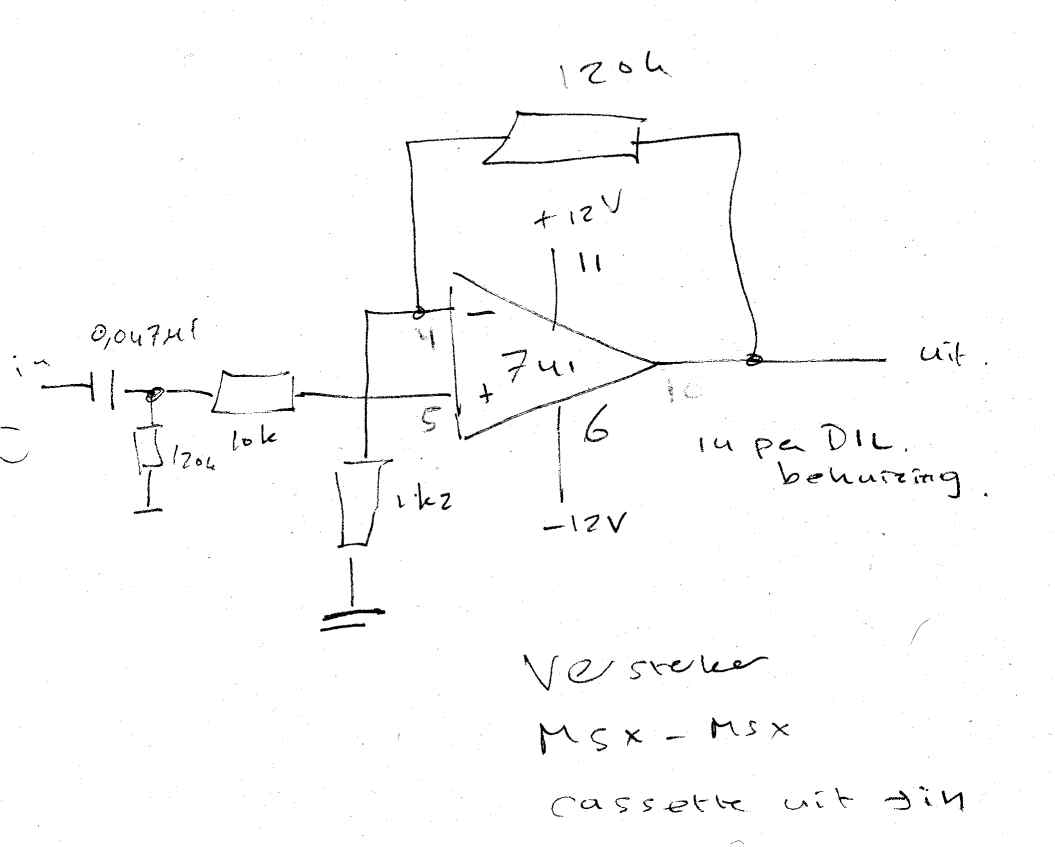 120k
+12V
11
0,047µf
in
4
-
741
uit.
10k
5
+
10
6
120k
14 pen DIL.
behuizing.
1k2
-12V
Versterker
MSX - MSX
cassette uit → in